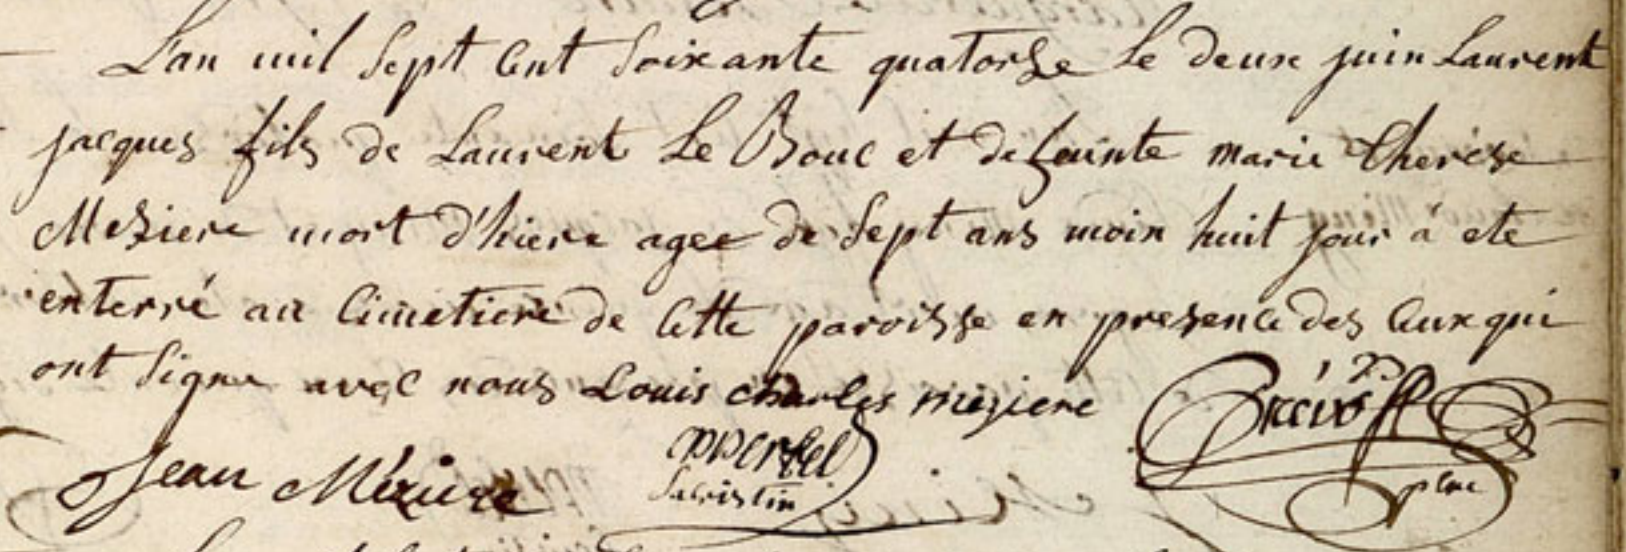 L'an mil sept cent soixante quatorze le deux juin Laurent
jacques fils de Laurent Le Bouc et defeunte marie therése
Meziere mort d'hiere agee de sept ans moin huit jour à ete
enterré au cimetiere de cette paroisse en presence des ceux qui
ont signe avec nous Louis charles meziere
Jean Méziere
sacristin